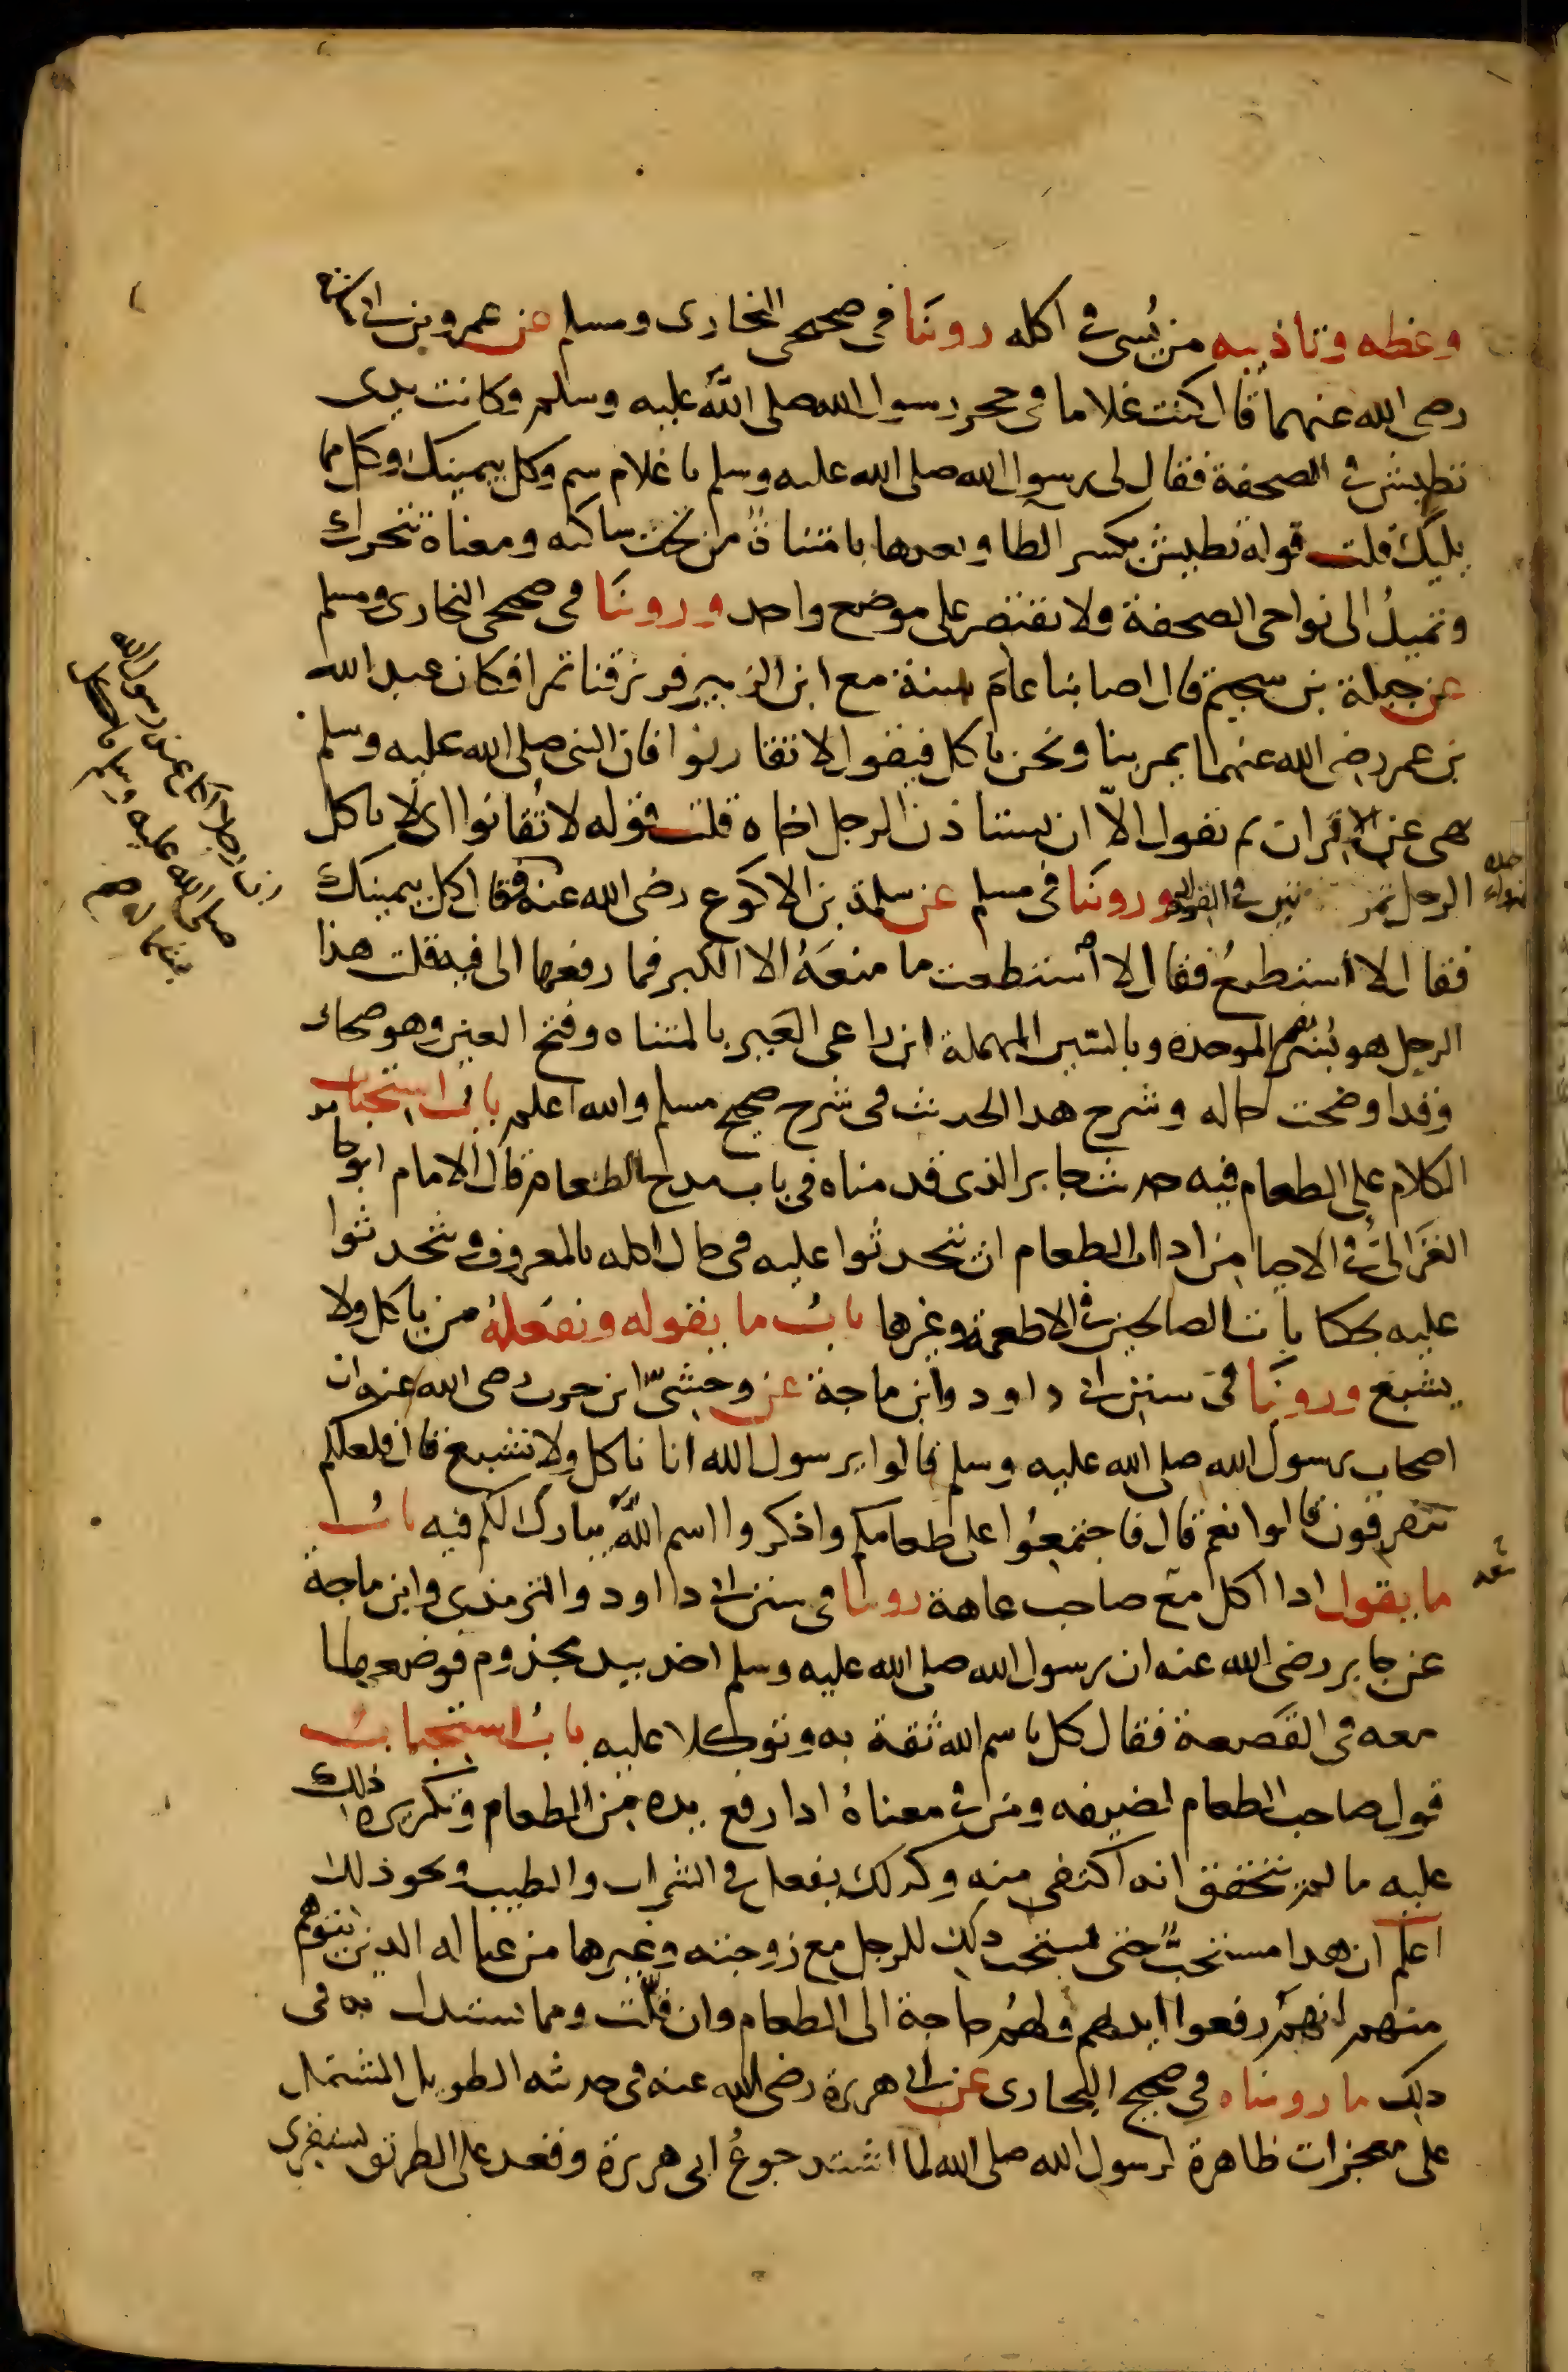 وعظه وتاذيبه من يُسى فى اكله روينا فى صحيحى البخارى ومسلم عن عمرو بن ابى سلمة
رضى الله عنهما قال كنت غلاما فى حجر رسول الله صلى الله عليه وسلم وكانت يدى
تطيش فى الصحفة فقال لى رسول الله صلى الله عليه وسلم يا غلام سم وكل بيمينك وكل مما
يليك قلت قوله تطيش بكسر الطا وبعدها يا مثناة من تحت ساكنه ومعناه تتحرك
وتميدُ الى نواحى الصحفة ولا تقتصر على موضع واحد وروينا فى صحيحى البخارى ومسلم
عن جبلة بن سحيم قال اصابنا عام سنة مع ابن الزبير فرزقنا تمرا فكان عبد الله
بن عمر رضى الله عنهما يمر بنا ونحن ناكل فيقول لا تقارنوا فان النبى صلى الله عليه وسلم
نهى عن الاقران ثم يقول الا ان يستاذن الرجل اخاه قلت قوله لا تُقارنوا اى لا ياكل
الرجل تمرتين فى وروينا فى مسلم عن سلمة بن الاكوع رضى الله عنه فقال كل بيمينك
فقال لا استطيعُ فقال لا استطعت ما منعَهُ الا الكبر فما رفعها الى فيه قلت هذا
الرجل هو بُسْر بضم الموحده وبالسين المهملة ابن راعى العَير بالمثناه وفتح العين وهو صحابى
وقد اوضحت حاله وشرح هذا الحديث فى شرح صحيح مسلم والله اعلم باب استحباب
الكلام على الطعام فيه حديث جابر الذى قدمناه فى باب مدح الطعام قال الامام ابو حامد
الغزالى فى الاحيا من اداب الطعام ان يتحدثوا عليه فى حال اكله بالمعروف ويتحدثوا
عليه بحكايات الصالحين فى الاطعمة وغيرها بابُ ما يقوله ويفعلهُ من ياكل ولا
يشبع وروينا فى سنن ابى داود وابن ماجة عن وحشىّ ابن حرب رضى الله عنه ان
اصحاب رسول الله صلى الله عليه وسلم قالوا يرسول الله انا ناكل ولا نشبع قال فلعلكم
تتفرقون قالوا نعم قال فاجتمعُوا على طعامكم واذكروا اسم الله يبارك لكم فيه بابُ
ما يقول اذا اكل مع صاحب عاهة روينا فى سنن ابى داود والترمذى وابن ماجة
عن جابر رضى الله عنه ان رسول الله صلى الله عليه وسلم اخذ بيد مجذوم فوضعها
معه فى القصعة فقال كل باسم الله ثقة به وتوكلا عليه بابُ استحبابُ
قول صاحب الطعام لضيفه ومن فى معناهُ اذا رفع يده من الطعام وتكريره ذلك
عليه ما لم يتحقق انه اكتفى منه وكذلك يفعل فى الشراب والطيب ونحو ذلك
اعلم ان هذا مستحبٌّ حتى يستحب ذلك للرجل مع زوجته وغيرها من عياله الذين يتوهم
منهم انهم رفعوا ايديهم ولهُم حاجة الى الطعام وان قلّت ومما يستدل به فى
ذلك ما رويناه فى صحيح البخارى عن ابى هريرة رضى الله عنه فى حديثه الطويل المشتمل
على معجزات ظاهرة لرسول الله صلى الله لما اشتد جوعُ ابى هريرة وقعد على الطريق يستقرى
ان رجلا اكل عند رسول الله
صلى الله عليه وسلم
بشماله